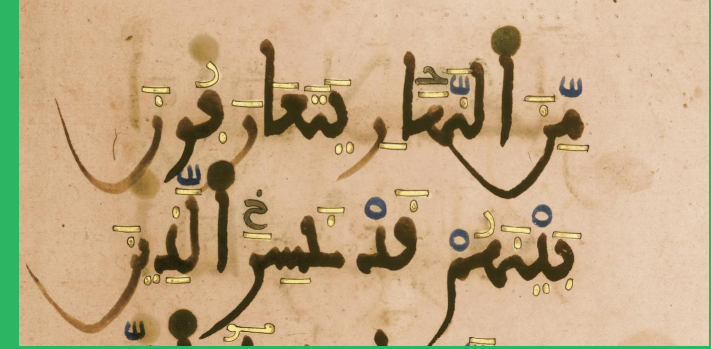 مِّنَ اَلنَّهَارِ يَتَعَارَفُونَ
بَيْنَهُمْ قَدْ خَسِرَ اَلَّذِينَ